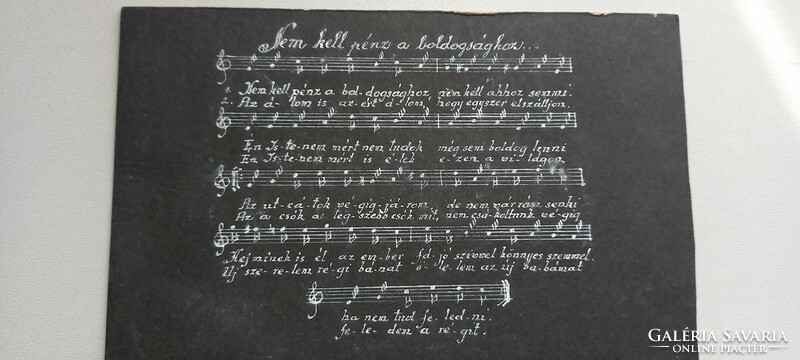 Nem kell pénz a boldogsághoz...
1. Nem kell pénz a bol-dogsághoz, nem kell ahhoz semmi.
2. Az á-lom is az-ért á-lom, hogy egyszer elszálljon.
Én Is-te-nem mért nem tudok még sem boldog lenni
Én Is-te-nem mért is é-lek e-zen a vi-lágon
Az ut-cá-tok vé-gig-já-rom, de nem vár rám senki
Az a csók a leg-szebb csók mit, nem csó-koltunk vé-gig
Hej minek is él az em-ber fá-jó szívvel könnyes szemmel.
Uj sze-re-lem ré-gi bánat ö-le-lem az új ba-bámat
ha nem tud fe-led-ni.
fe-le-dem a ré-git.
GALÉRIA SAVARIA
ONLINE PIACTÉR